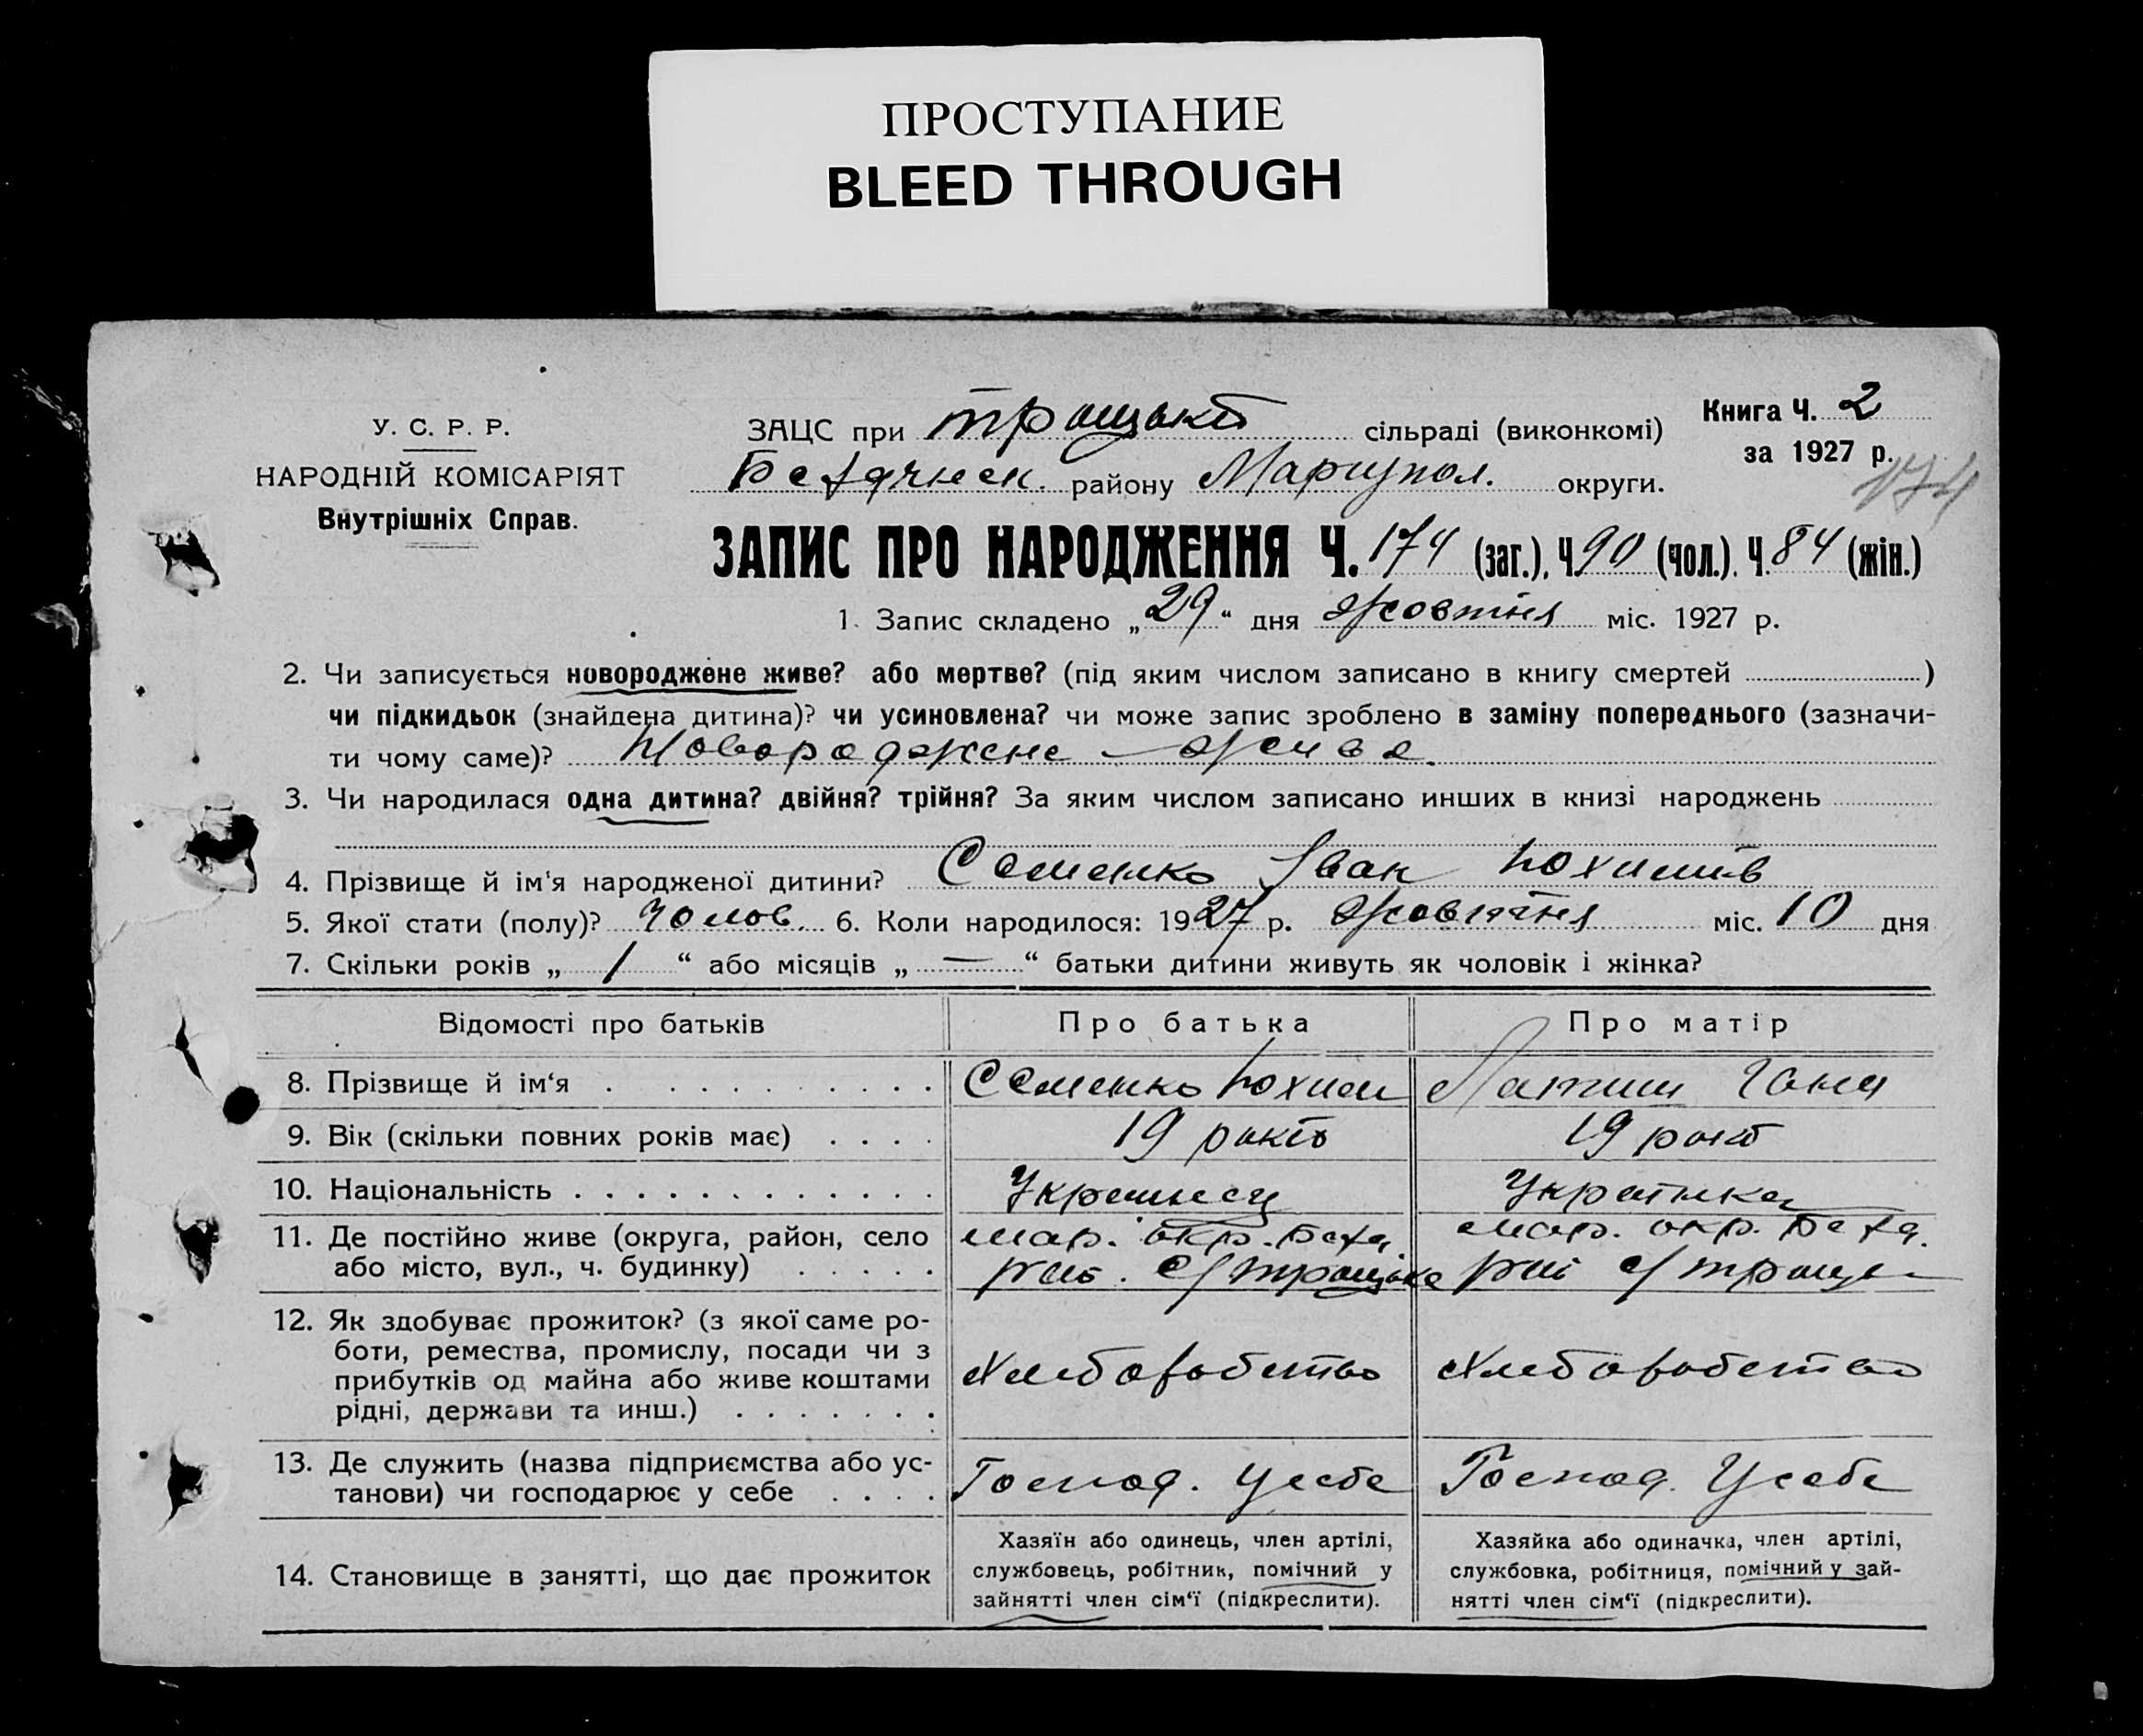 ПРОСТУПАНИЕ
BLEED THROUGH
У. С. Р. Р.
НАРОДНІЙ КОМІСАРІЯТ
Внутрішніх Справ.
ЗАЦС при Троцькій сільраді (виконкомі)
району Маріупол. округи.
Книга Ч. 2
за 1927 р.
174
ЗАПИС ПРО НАРОДЖЕННЯ Ч. 174 (заг.), Ч. 90 (чол.). Ч. 84 (жін.)
1. Запис складено „29“ дня Жовтня міс. 1927 р.
2. Чи записується новороджене живе? або мертве? (під яким числом записано в книгу смертей )
чи підкидьок (знайдена дитина)? чи усиновлена? чи може запис зроблено в заміну попереднього (зазначи-
ти чому саме)? Новороджене – живе.
3. Чи народилася одна дитина? двійня? трійня? За яким числом записано инших в книзі народжень
4. Прізвище й ім'я народженої дитини? Семенко Іван Юхимів
5. Якої стати (полу)? Чолов. 6. Коли народилося: 1927 р. Жовтня міс. 10 дня
7. Скільки років „ 1 “ або місяців „ — “ батьки дитини живуть як чоловік і жінка?
Відомості про батьків Про батька Про матір
8. Прізвище й ім‘я Семенко Юхим Ганя
9. Вік (скільки повних років має) 19 років 19 років
10. Національність Українец Українка
11. Де постійно живе (округа, район, село
або місто, вул., ч. будинку)
мар. окр.
рай. с/Троцьке
мар. окр.
рай с/Троцьк
12. Як здобуває прожиток? (з якої саме ро-
боти, ремества, промислу, посади чи з
прибутків од майна або живе коштами
рідні, держави та инш.)
Хліборобство Хліборобство
13. Де служить (назва підприємства або ус-
танови) чи господарює у себе
Господ. У себе Господ. У себе
14. Становище в занятті, що дає прожиток
Хазяїн або одинець, член артілі,
службовець, робітник, помічний у
зайнятті член сім‘ї (підкреслити).
Хазяйка або одиначка, член артілі,
службовка, робітниця, помічний у зай-
нятті член сім‘ї (підкреслити).